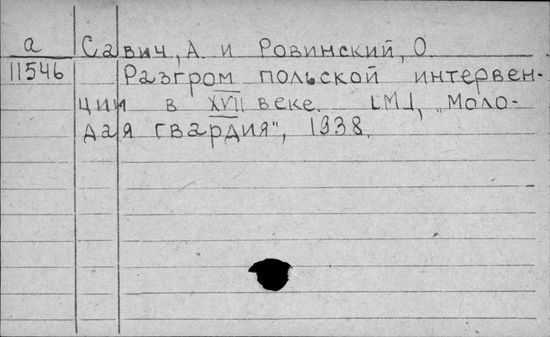 а Савич, А. и Ровинский, О.
11546 Разгром польской интервен-
ции в XVII веке. [М.], „Моло-
дая гвардия", 1938.